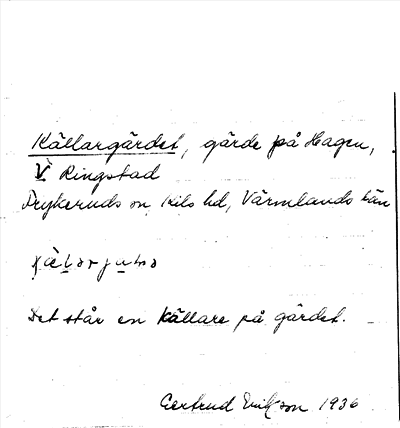 Källargärdet, gärde på Hagen,
V Ringstad
Frykeruds sn, Kils hd, Värmlands län
Det står en källare på gärdet.
Gertrud Erikson 1936